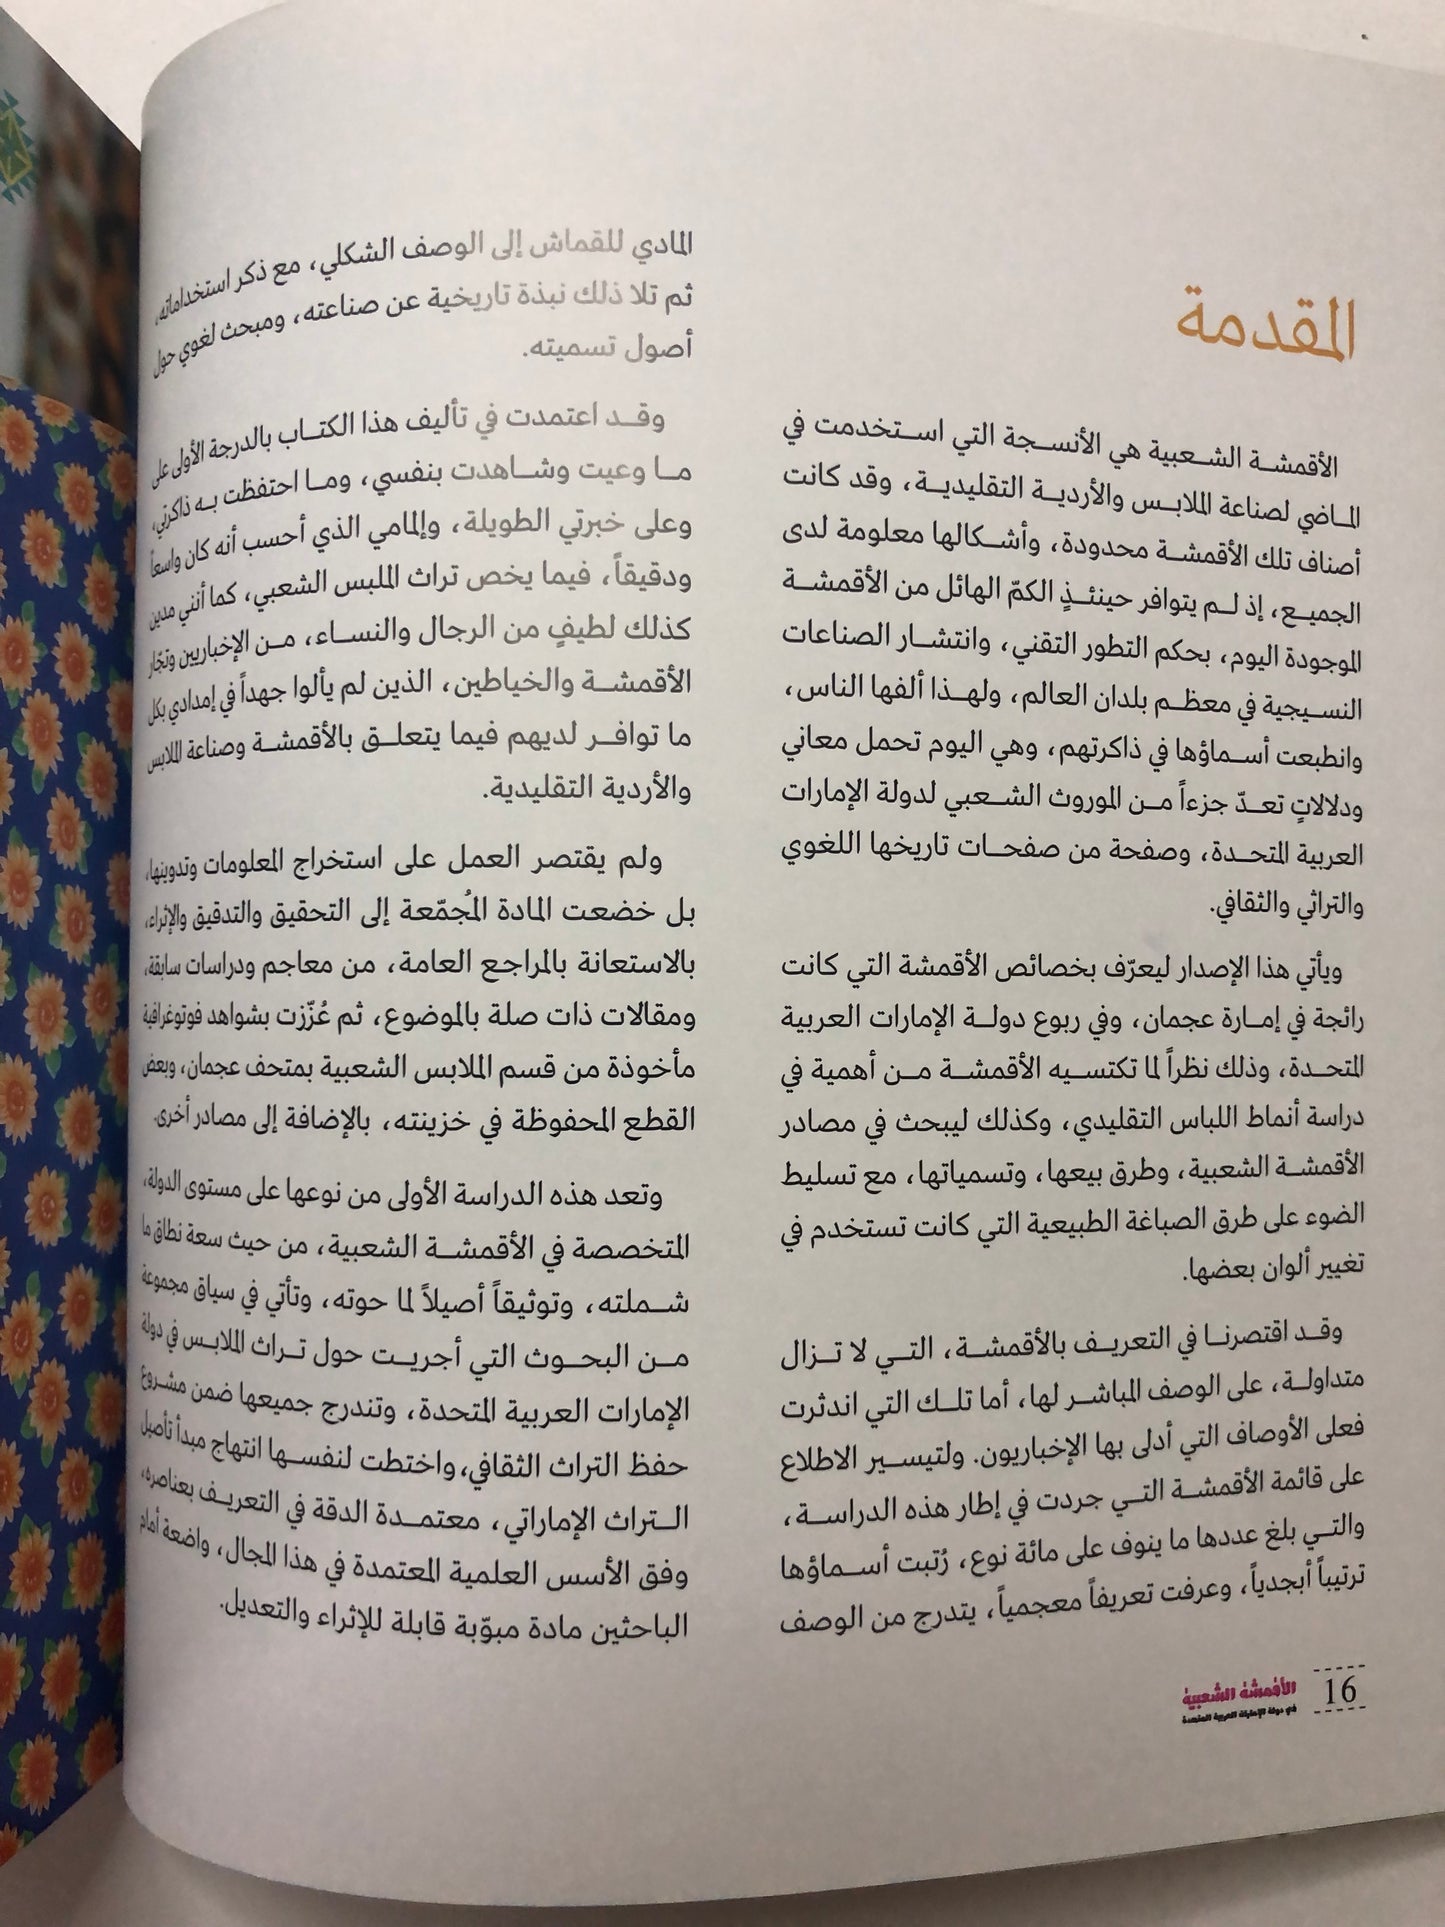 المقدمة
الأقمشة الشعبية هي الأنسجة التي استخدمت في
الماضي لصناعة الملابس والأردية التقليدية، وقد كانت
أصناف تلك الأقمشة محدودة، وأشكالها معلومة لدى
الجميع، إذ لم يتوافر حينئذٍ الكمّ الهائل من الأقمشة
الموجودة اليوم، بحكم التطور التقني، وانتشار الصناعات
النسيجية في معظم بلدان العالم، ولهذا ألفها الناس،
وانطبعت أسماؤها في ذاكرتهم، وهي اليوم تحمل معاني
ودلالاتٍ تعدّ جزءاً من الموروث الشعبي لدولة الإمارات
العربية المتحدة، وصفحة من صفحات تاريخها اللغوي
والتراثي والثقافي.
ويأتي هذا الإصدار ليعرّف بخصائص الأقمشة التي كانت
رائجة في إمارة عجمان، وفي ربوع دولة الإمارات العربية
المتحدة، وذلك نظراً لما تكتسيه الأقمشة من أهمية في
دراسة أنماط اللباس التقليدي، وكذلك ليبحث في مصادر
الأقمشة الشعبية، وطرق بيعها، وتسمياتها، مع تسليط
الضوء على طرق الصباغة الطبيعية التي كانت تستخدم في
تغيير ألوان بعضها.
وقد اقتصرنا في التعريف بالأقمشة، التي لا تزال
متداولة، على الوصف المباشر لها، أما تلك التي اندثرت
فعلى الأوصاف التي أدلى بها الإخباريون. ولتيسير الاطلاع
على قائمة الأقمشة التي جردت في إطار هذه الدراسة،
والتي بلغ عددها ما ينوف على مائة نوع، رُتبت أسماؤها
ترتيباً أبجدياً، وعرفت تعريفاً معجمياً، يتدرج من الوصف
المادي للقماش إلى الوصف الشكلي، مع ذكر استخداماته،
ثم تلا ذلك نبذة تاريخية عن صناعته، ومبحث لغوي حول
أصول تسميته.
وقد اعتمدت في تأليف هذا الكتاب بالدرجة الأولى على
ما وعيت وشاهدت بنفسي، وما احتفظت به ذاكرتي،
وعلى خبرتي الطويلة، وإلمامي الذي أحسب أنه كان واسعاً
ودقيقاً، فيما يخص تراث الملبس الشعبي، كما أنني مدين
كذلك لطيفٍ من الرجال والنساء، من الإخباريين وتجّار
الأقمشة والخياطين، الذين لم يألوا جهداً في إمدادي بكل
ما توافر لديهم فيما يتعلق بالأقمشة وصناعة الملابس
والأردية التقليدية.
ولم يقتصر العمل على استخراج المعلومات وتدوينها،
بل خضعت المادة المُجمّعة إلى التحقيق والتدقيق والإثراء،
بالاستعانة بالمراجع العامة، من معاجم ودراسات سابقة،
ومقالات ذات صلة بالموضوع، ثم عُزّزت بشواهد فوتوغرافية
مأخوذة من قسم الملابس الشعبية بمتحف عجمان، وبعض
القطع المحفوظة في خزينته، بالإضافة إلى مصادر أخرى.
وتعد هذه الدراسة الأولى من نوعها على مستوى الدولة،
المتخصصة في الأقمشة الشعبية، من حيث سعة نطاق ما
شملته، وتوثيقاً أصيلاً لما حوته، وتأتي في سياق مجموعة
من البحوث التي أجريت حول تراث الملابس في دولة
الإمارات العربية المتحدة، وتندرج جميعها ضمن مشروع
حفظ التراث الثقافي، واختطت لنفسها انتهاج مبدأ تأصيل
التراث الإماراتي، معتمدة الدقة في التعريف بعناصره،
وفق الأسس العلمية المعتمدة في هذا المجال، واضعة أمام
الباحثين مادة مبوّبة قابلة للإثراء والتعديل.
16
الأقمشة الشعبية
في دولة الإمارات العربية المتحدة